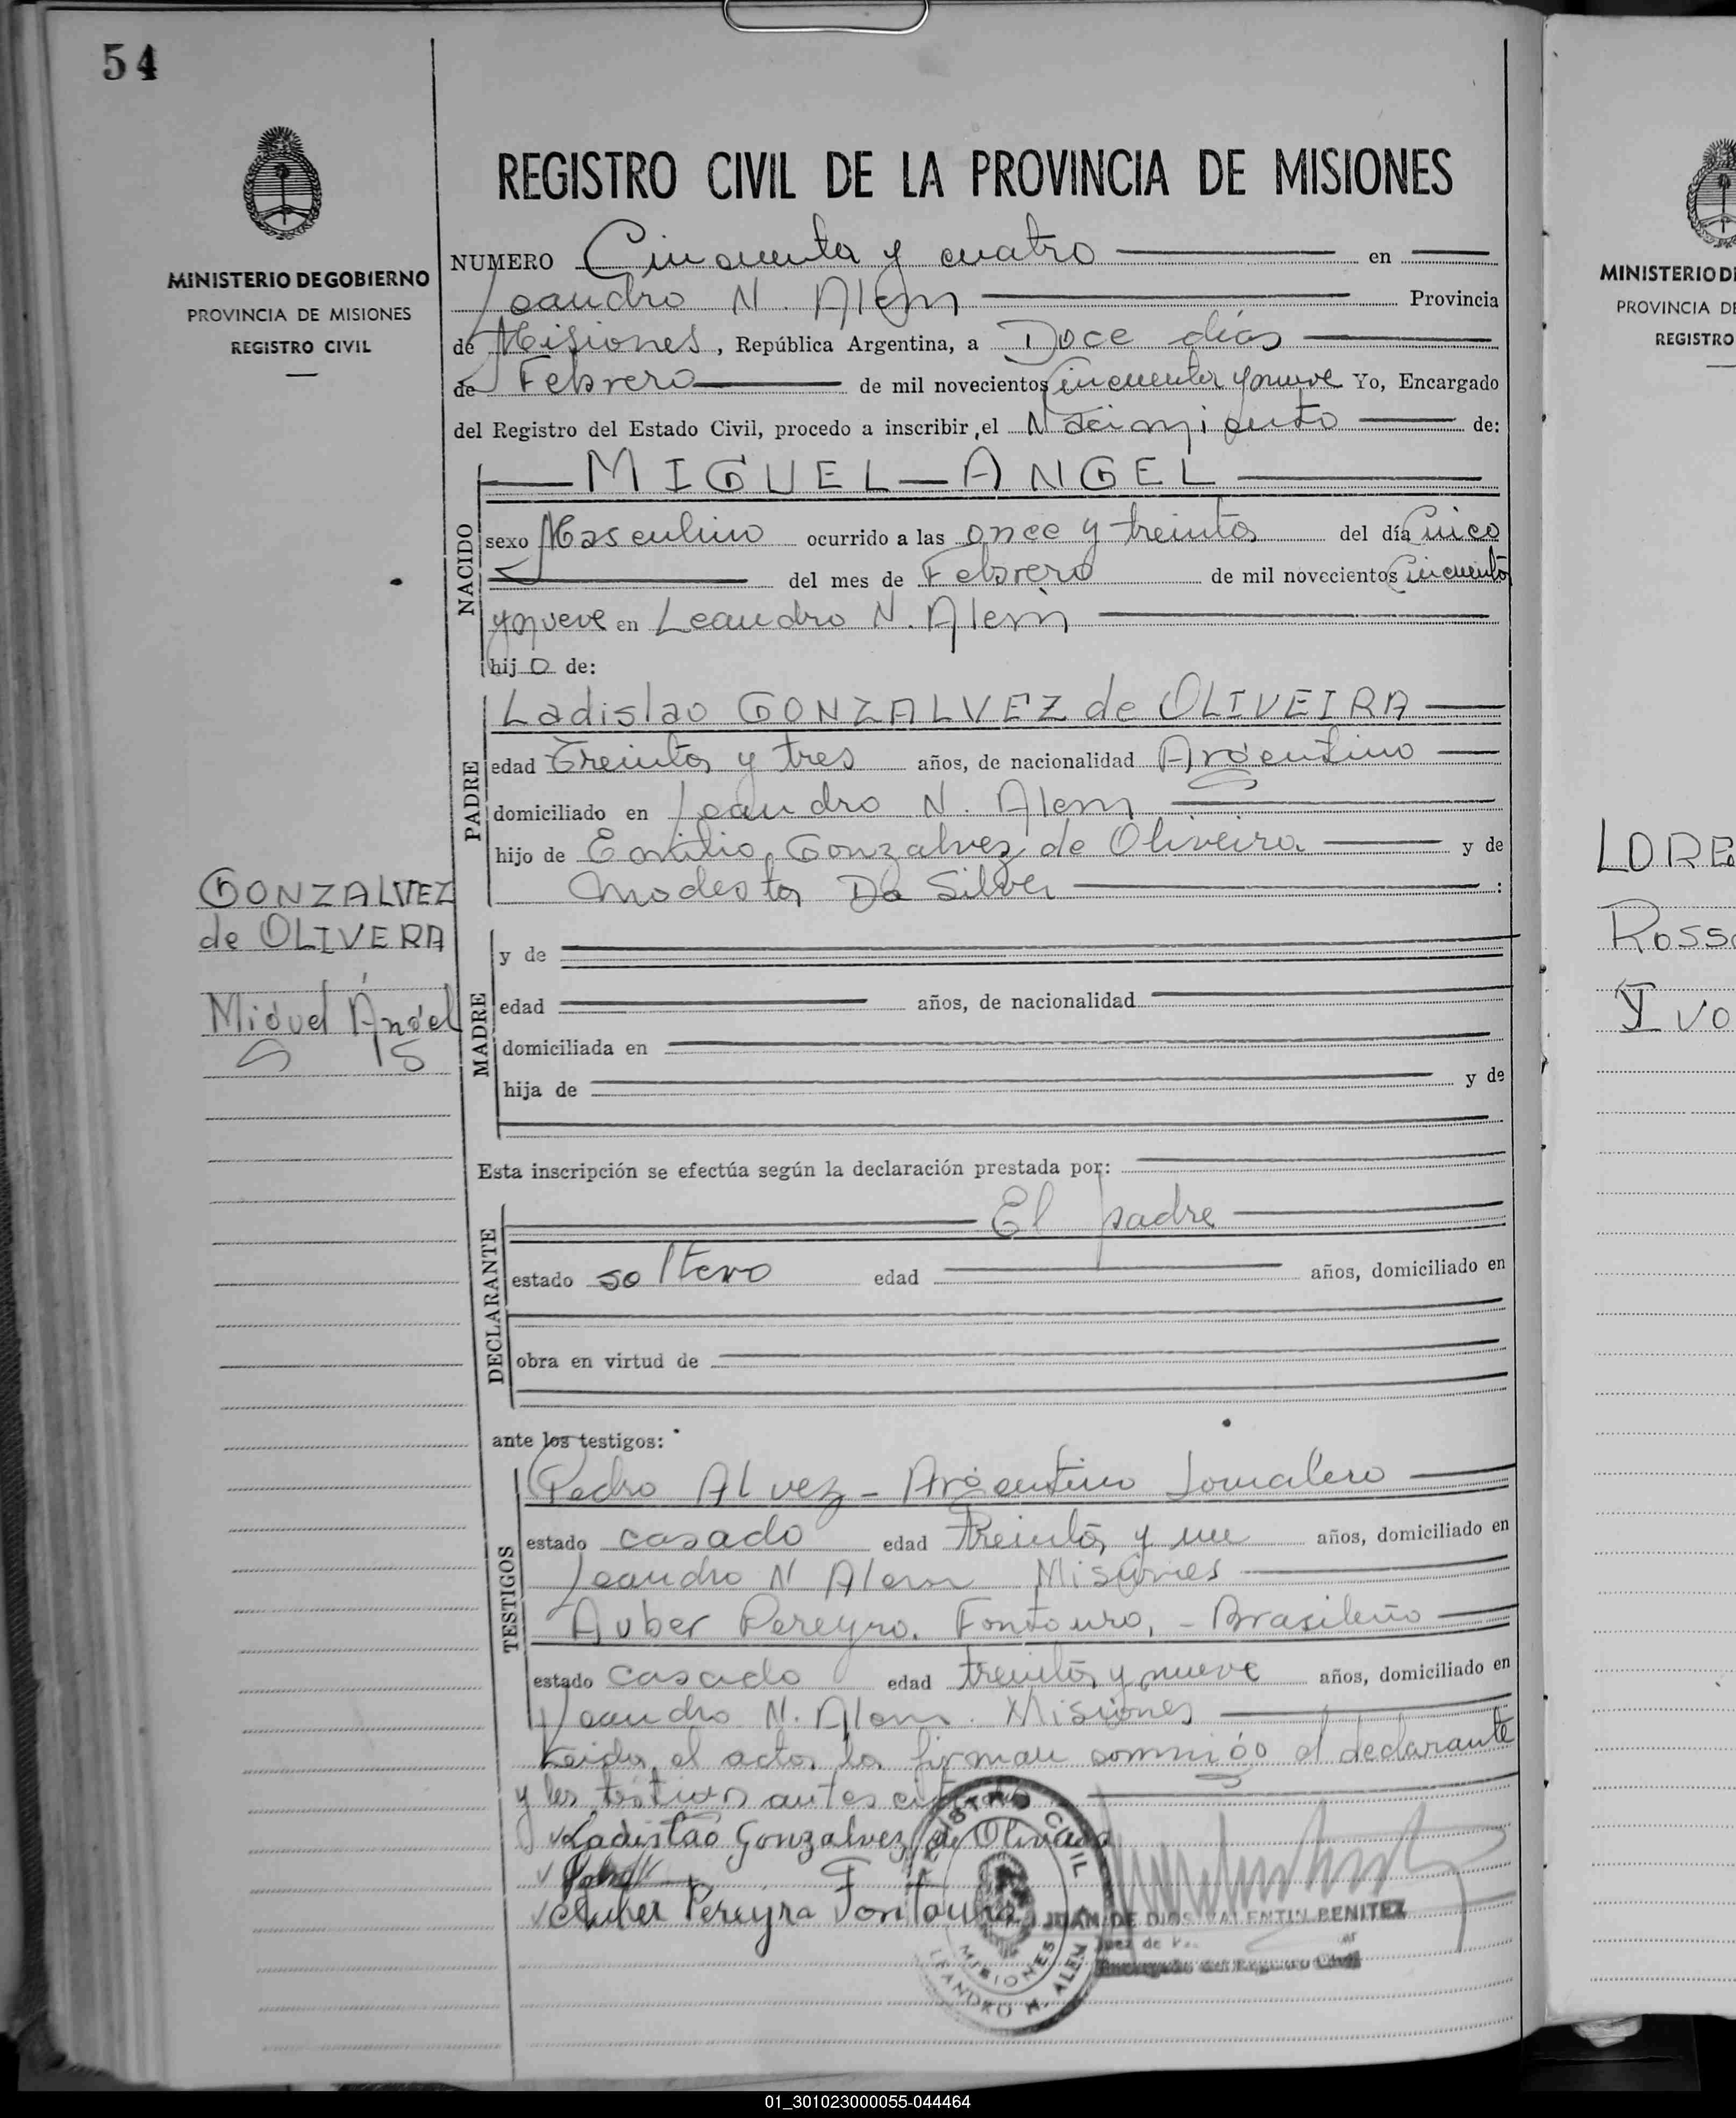 54
MINISTERIO DE GOBIERNO
PROVINCIA DE MISIONES
REGISTRO CIVIL
GONZALVEZ
de OLIVERA
Miguel Ángel
REGISTRO CIVIL DE LA PROVINCIA DE MISIONES
NUMERO Cincuenta y cuatro en
Leandro N. Alem Provincia
de Misiones, República Argentina, a Doce días
de Febrero de mil novecientos cincuenta y nueve Yo, Encargado
del Registro del Estado Civil, procedo a inscribir el Nacimiento de:
NACIDO
MIGUEL-ANGEL
sexo Masculino ocurrido a las once y treinta del día Cinco
del mes de Febrero de mil novecientos Cincuenta
y nueve en Leandro N. Alem
hijo de:
PADRE
Ladislao GONZALVEZ de OLIVEIRA
edad Treinta y tres años, de nacionalidad Argentino
domiciliado en Leandro N. Alem
hijo de Emilio Gonzalvez de Oliveira y de
Modesta Da Silva :
MADRE
y de
edad años, de nacionalidad
domiciliada en
hija de y de
Esta inscripción se efectúa según la declaración prestada por:
DECLARANTE
El padre
estado soltero edad años, domiciliado en
obra en virtud de
ante los testigos:
TESTIGOS
Pedro Alvez - Argentino Jornalero
estado casado edad treinta y un años, domiciliado en
Leandro N Alem Misiones
Auber Pereyra Fontoura, - Brasileño
estado casado edad treinta y nueve años, domiciliado en
Leandro N. Alem. Misiones
Leida el acta, la firman conmigo el declarante
y los testigos antes citados
Ladislao Gonzalvez de Oliveira
Auber Pereyra Fontoura
REGISTRO CIVIL
MISIONES
LEANDRO N. ALEM
JUAN DE DIOS VALENTIN BENITEZ
Juez de
Encargado del Registro Civil
MINISTERIO D
PROVINCIA D
REGISTRO
LORE
Ross
Ivo
01_301023000055-044464